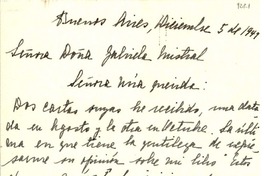 Buenos Aires, Diciembre 5 de 1949
Señora Doña Gabriela Mistral
Señora mía querida:
Dos cartas suyas he recibido, una data-
da en Agosto y la otra en Octubre. La últi-
ma en que tiene la gentileza de expre-
sarme su opinión sobre mi libro "Estos